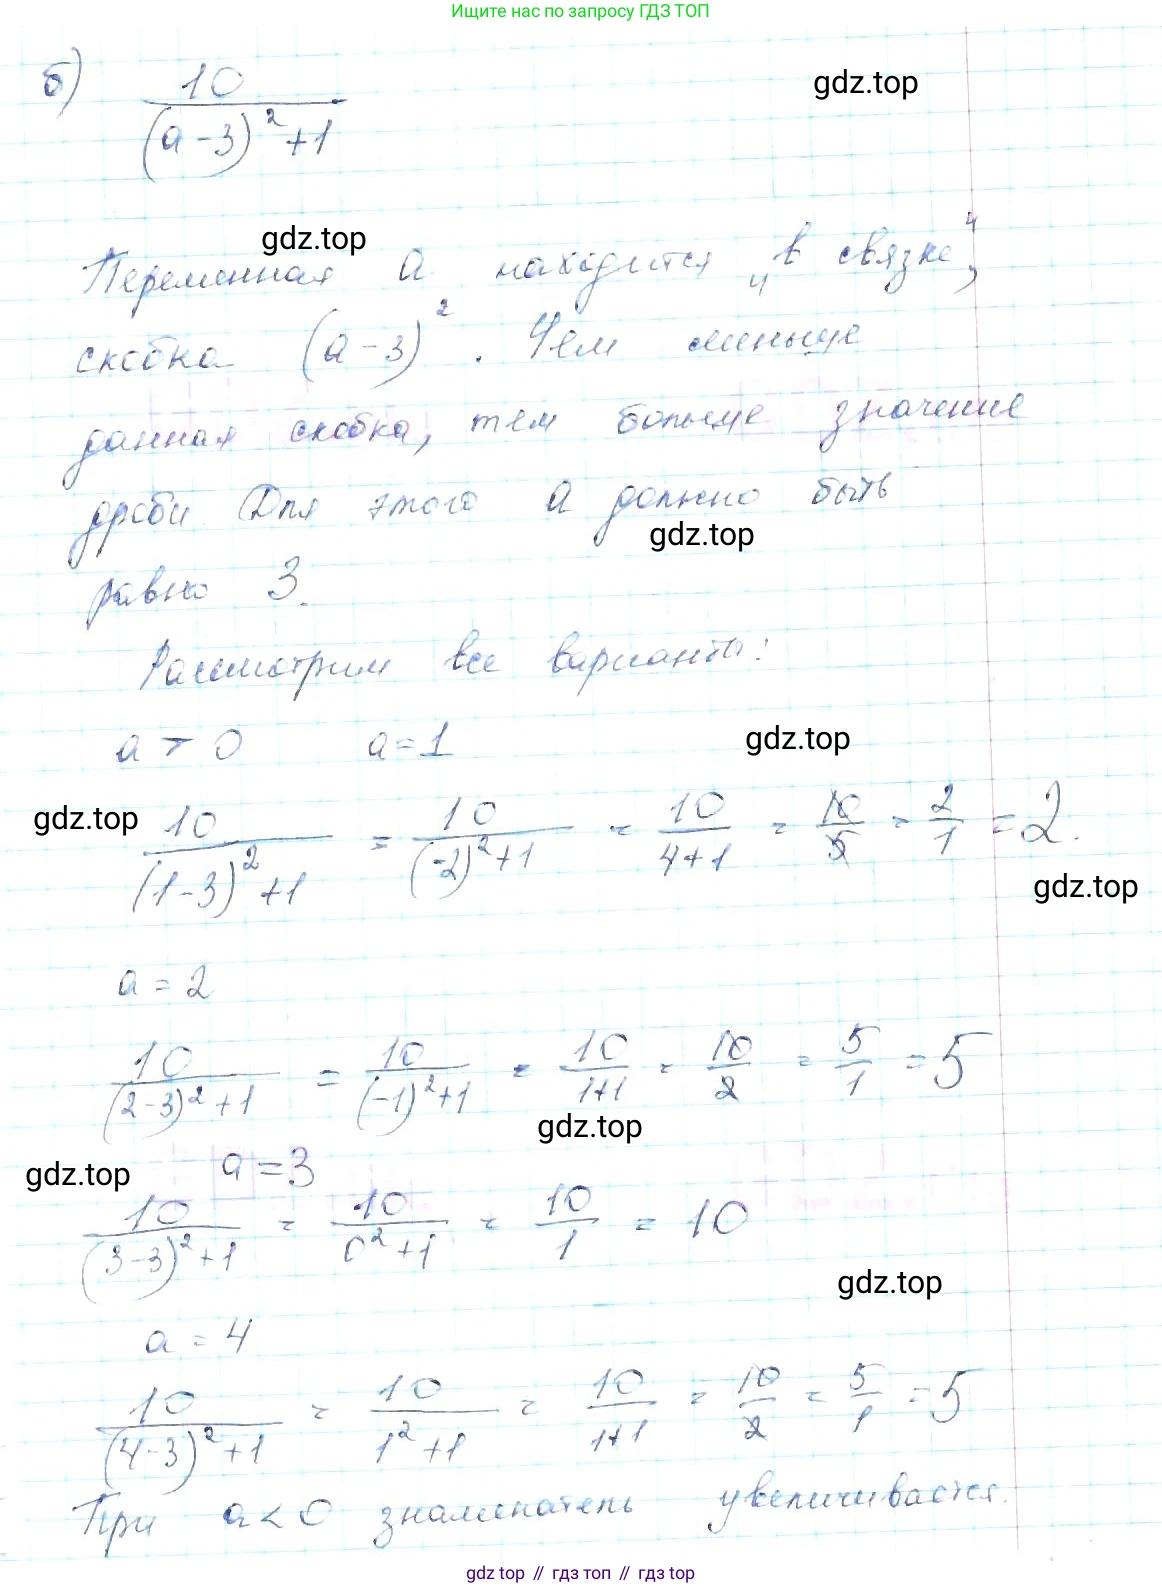 Ищите нас по запросу ГДЗ ТОП
б) 10/((a-3)²+1)
gdz.top
gdz.top
Переменная a находится „в связке“,
скобка (a-3)². Чем меньше
данная скобка, тем больше значение
дроби. Для этого a должно быть
gdz.top
равно 3.
Рассмотрим все варианты:
a > 0 a=1
gdz.top
gdz.top
10/((1-3)²+1) = 10/((-2)²+1) = 10/(4+1) = 10/5 = 2/1 = 2.
gdz.top
a = 2
10/((2-3)²+1) = 10/((-1)²+1) = 10/(1+1) = 10/2 = 5/1 = 5
gdz.top
gdz.top
a = 3
10/((3-3)²+1) = 10/(0²+1) = 10/1 = 10
gdz.top
a = 4
10/((4-3)²+1) = 10/(1²+1) = 10/(1+1) = 10/2 = 5/1 = 5
При a < 0 знаменатель увеличивается.
gdz top // гдз топ // гдз top